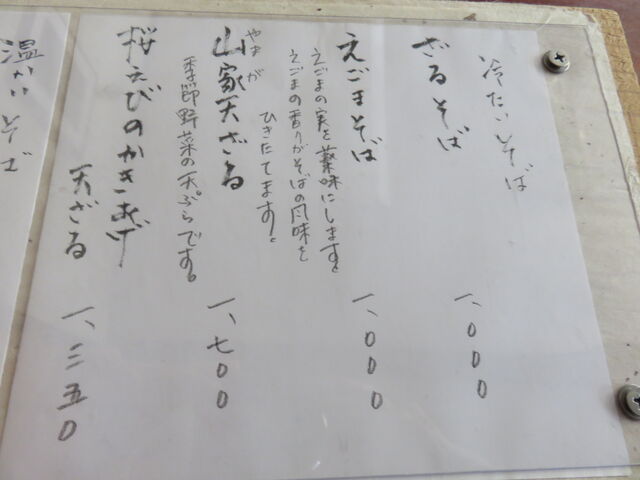 冷たいそば
ざるそば
一、〇〇〇
えごまそば
一、〇〇〇
えごまの実を薬味にしますと
えごまの香りがそばの風味を
ひきたてます。
山家天ざる
やまが
一、七〇〇
季節野菜の天ぷらです。
桜えびのかきあげ
天ざる
一、三五〇
温かいそば